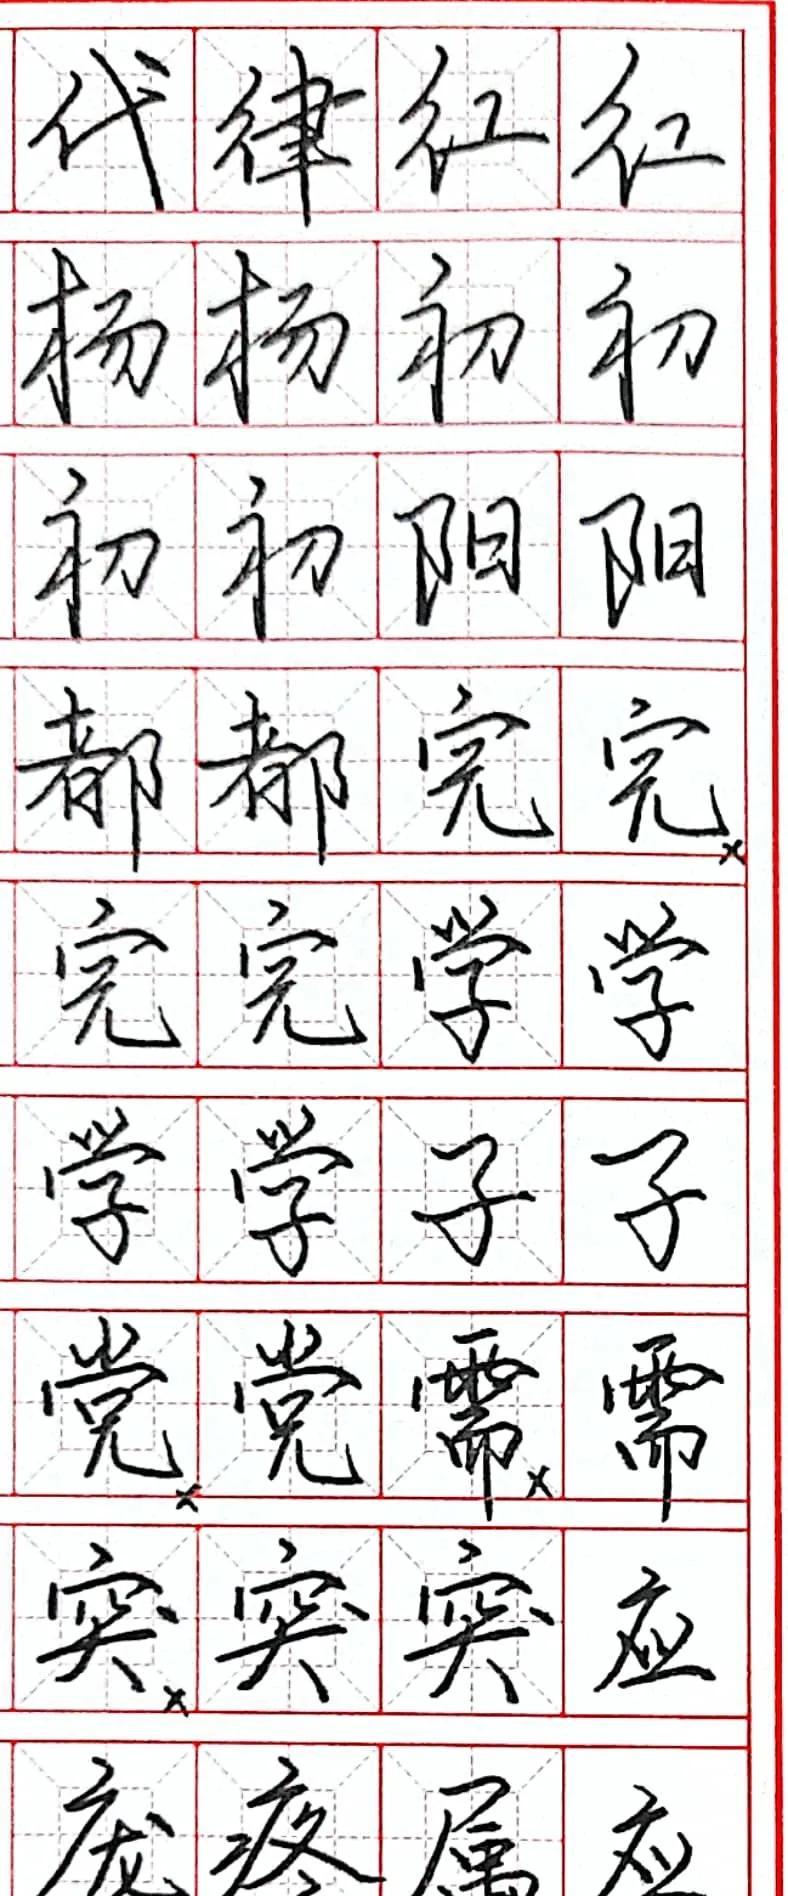 代律红红
杨杨初初
初初阳阳
都都完完
完完学学
学学子子
党党需需
突突突应
庞疼属应